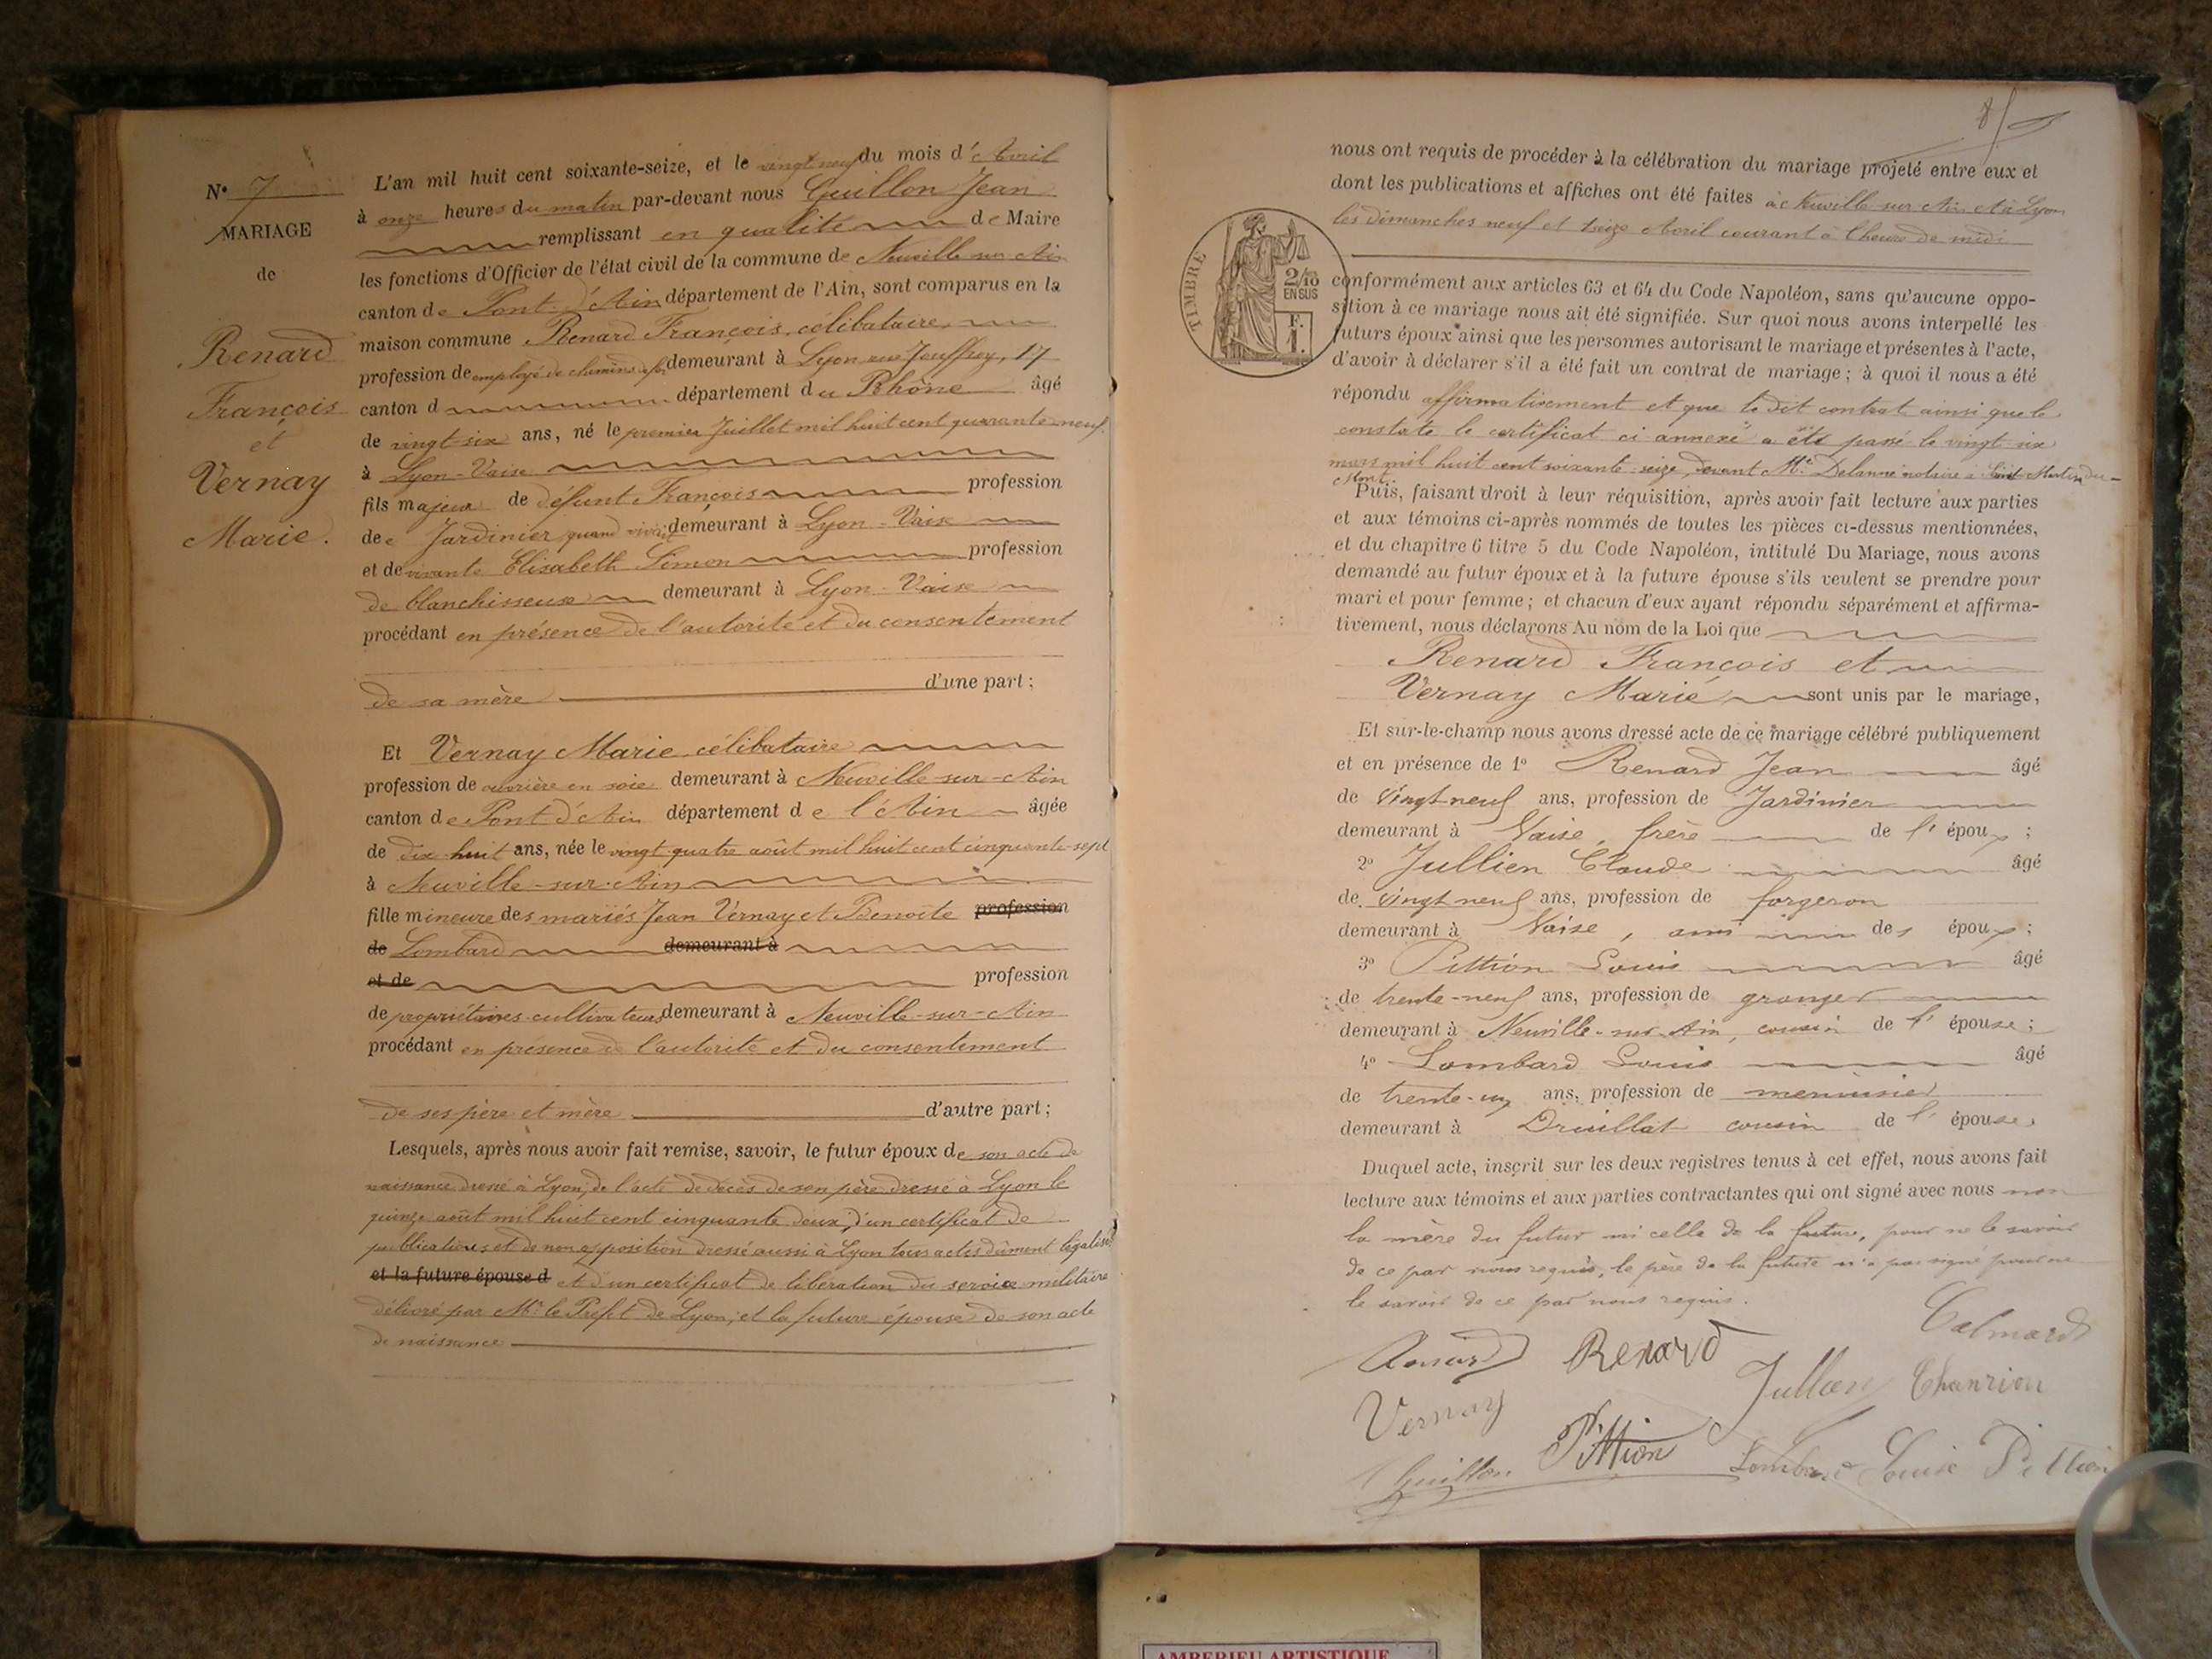 N° 7
MARIAGE
de
Renard
François
et
Vernay
Marie.
L'an mil huit cent soixante-seize, et le vingt neuf du mois d'Avril
à onze heures du matin par-devant nous Guillon Jean
remplissant en qualité de Maire
les fonctions d'Officier de l'état civil de la commune de Neuville sur Ain
canton de Pont d'Ain département de l'Ain, sont comparus en la
maison commune Renard François, célibataire,
profession de employé de chemins de fer demeurant à Lyon rue Jouffroy, 17
canton d département du Rhône âgé
de vingt six ans, né le premier Juillet mil huit cent quarante neuf
à Lyon-Vaise
fils majeur de défunt François profession
de Jardinier quand vivait demeurant à Lyon-Vaise
et de vivante Elisabeth Simon profession
de blanchisseuse demeurant à Lyon-Vaise
procédant en présence de l'autorité et du consentement
de sa mère d'une part;
Et Vernay Marie, célibataire
profession de ouvrière en soie demeurant à Neuville-sur-Ain
canton de Pont d'Ain département de l'Ain âgée
de dix huit ans, née le vingt quatre août mil huit cent cinquante-sept
à Neuville-sur-Ain
fille mineure des mariés Jean Vernay et Benoîte profession
de Lombard demeurant à
et de profession
de propriétaires-cultivateurs demeurant à Neuville-sur-Ain
procédant en présence de l'autorité et du consentement
de ses père et mère d'autre part;
Lesquels, après nous avoir fait remise, savoir, le futur époux de son acte de
naissance dressé à Lyon, de l'acte de décès de son père dressé à Lyon le
quinze août mil huit cent cinquante deux, d'un certificat de
publications et de non opposition dressé aussi à Lyon tous actes dûment légalisés
et la future épouse d et d'un certificat de libération du service militaire
délivré par Mr. le Préfet de Lyon; et la future épouse de son acte
de naissance
8
nous ont requis de procéder à la célébration du mariage projeté entre eux et
dont les publications et affiches ont été faites à Neuville sur Ain et à Lyon
les dimanches neuf et seize Avril courant à l'heure de midi
TIMBRE
2/10 EN SUS
F. 1.
conformément aux articles 63 et 64 du Code Napoléon, sans qu'aucune oppo-
sition à ce mariage nous ait été signifiée. Sur quoi nous avons interpellé les
futurs époux ainsi que les personnes autorisant le mariage et présentes à l'acte,
d'avoir à déclarer s'il a été fait un contrat de mariage; à quoi il nous a été
répondu affirmativement et que le dit contrat ainsi que le
constate le certificat ci annexé a été passé le vingt six
mars mil huit cent soixante-seize, devant Me. Delanne notaire à Saint Martin du-
Mont.
Puis, faisant droit à leur réquisition, après avoir fait lecture aux parties
et aux témoins ci-après nommés de toutes les pièces ci-dessus mentionnées,
et du chapitre 6 titre 5 du Code Napoléon, intitulé Du Mariage, nous avons
demandé au futur époux et à la future épouse s'ils veulent se prendre pour
mari et pour femme; et chacun d'eux ayant répondu séparément et affirma-
tivement, nous déclarons Au nom de la Loi que
Renard François et
Vernay Marie sont unis par le mariage,
Et sur-le-champ nous avons dressé acte de ce mariage célébré publiquement
et en présence de 1° Renard Jean âgé
de vingt neuf ans, profession de Jardinier
demeurant à Vaise, frère de l'époux;
2° Jullien Claude âgé
de vingt neuf ans, profession de forgeron
demeurant à Vaise, ami des époux;
3° Pittion Louis âgé
de trente-neuf ans, profession de granger
demeurant à Neuville-sur Ain, cousin de l'épouse;
4° Lombard Louis âgé
de trente-un ans, profession de menuisier
demeurant à Druillat cousin de l'épouse.
Duquel acte, inscrit sur les deux registres tenus à cet effet, nous avons fait
lecture aux témoins et aux parties contractantes qui ont signé avec nous non
la mère du futur ni celle de la future, pour ne le savoir
de ce par nous requis, le père de la future n'a pas signé pour ne
le savoir de ce par nous requis.
Calmard
Renard Renard
Jullien Chanrion
Vernay
Guillon Pittion Lombard Louise Pittion
AMBERIEU ARTISTIQUE